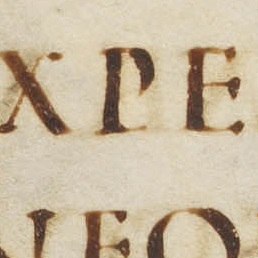 XPE
NFO